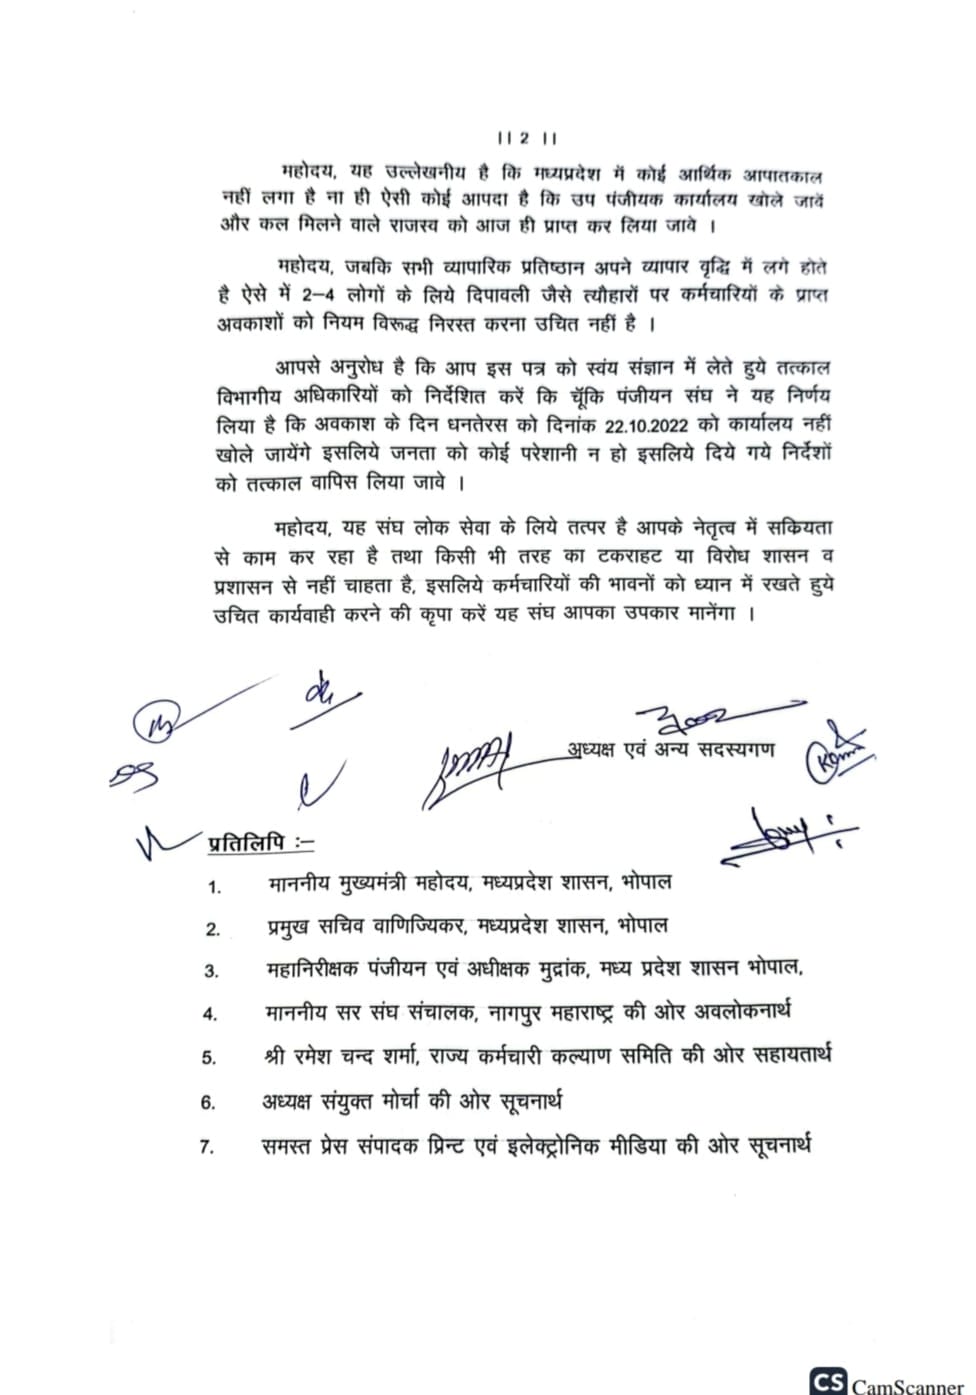 ।। 2 ।।
महोदय, यह उल्लेखनीय है कि मध्यप्रदेश में कोई आर्थिक आपातकाल
नहीं लगा है ना ही ऐसी कोई आपदा है कि उप पंजीयक कार्यालय खोले जावें
और कल मिलने वाले राजस्व को आज ही प्राप्त कर लिया जावे ।
महोदय, जबकि सभी व्यापारिक प्रतिष्ठान अपने व्यापार वृद्धि में लगे होते
है ऐसे में 2–4 लोगों के लिये दिपावली जैसे त्यौहारों पर कर्मचारियों के प्राप्त
अवकाशों को नियम विरूद्ध निरस्त करना उचित नहीं है ।
आपसे अनुरोध है कि आप इस पत्र को स्वंय संज्ञान में लेते हुये तत्काल
विभागीय अधिकारियों को निर्देशित करें कि चूॅकि पंजीयन संघ ने यह निर्णय
लिया है कि अवकाश के दिन धनतेरस को दिनांक 22.10.2022 को कार्यालय नहीं
खोले जायेंगे इसलिये जनता को कोई परेशानी न हो इसलिये दिये गये निर्देशों
को तत्काल वापिस लिया जावे ।
महोदय, यह संघ लोक सेवा के लिये तत्पर है आपके नेतृत्व में सकियता
से काम कर रहा है तथा किसी भी तरह का टकराहट या विरोध शासन व
प्रशासन से नहीं चाहता है, इसलिये कर्मचारियों की भावनों को ध्यान में रखते हुये
उचित कार्यवाही करने की कृपा करें यह संघ आपका उपकार मानेंगा ।
अध्यक्ष एवं अन्य सदस्यगण
प्रतिलिपि :–
1. माननीय मुख्यमंत्री महोदय, मध्यप्रदेश शासन, भोपाल
2. प्रमुख सचिव वाणिज्यिकर, मध्यप्रदेश शासन, भोपाल
3. महानिरीक्षक पंजीयन एवं अधीक्षक मुद्रांक, मध्य प्रदेश शासन भोपाल,
4. माननीय सर संघ संचालक, नागपुर महाराष्ट्र की ओर अवलोकनार्थ
5. श्री रमेश चन्द शर्मा, राज्य कर्मचारी कल्याण समिति की ओर सहायतार्थ
6. अध्यक्ष संयुक्त मोर्चा की ओर सूचनार्थ
7. समस्त प्रेस संपादक प्रिन्ट एवं इलेक्ट्रोनिक मीडिया की ओर सूचनार्थ
CS CamScanner